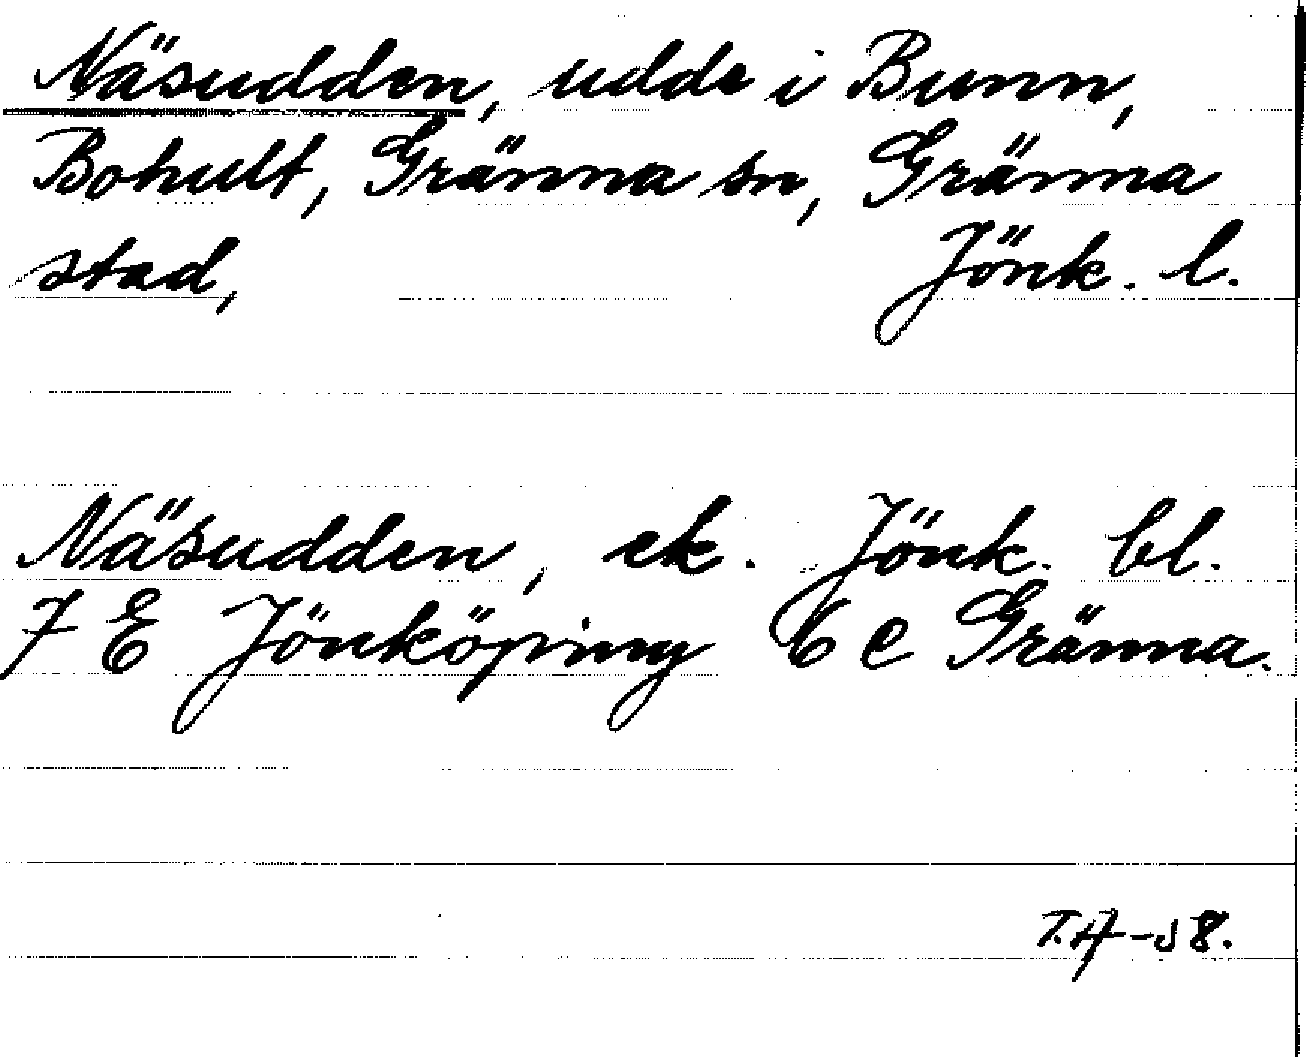 Näsudden, udde i Bunn,
Bohult, Gränna sn, Gränna
stad, Jönk. l.
Näsudden, ek. Jönk. bl.
7 E Jönköping 6 c Gränna.